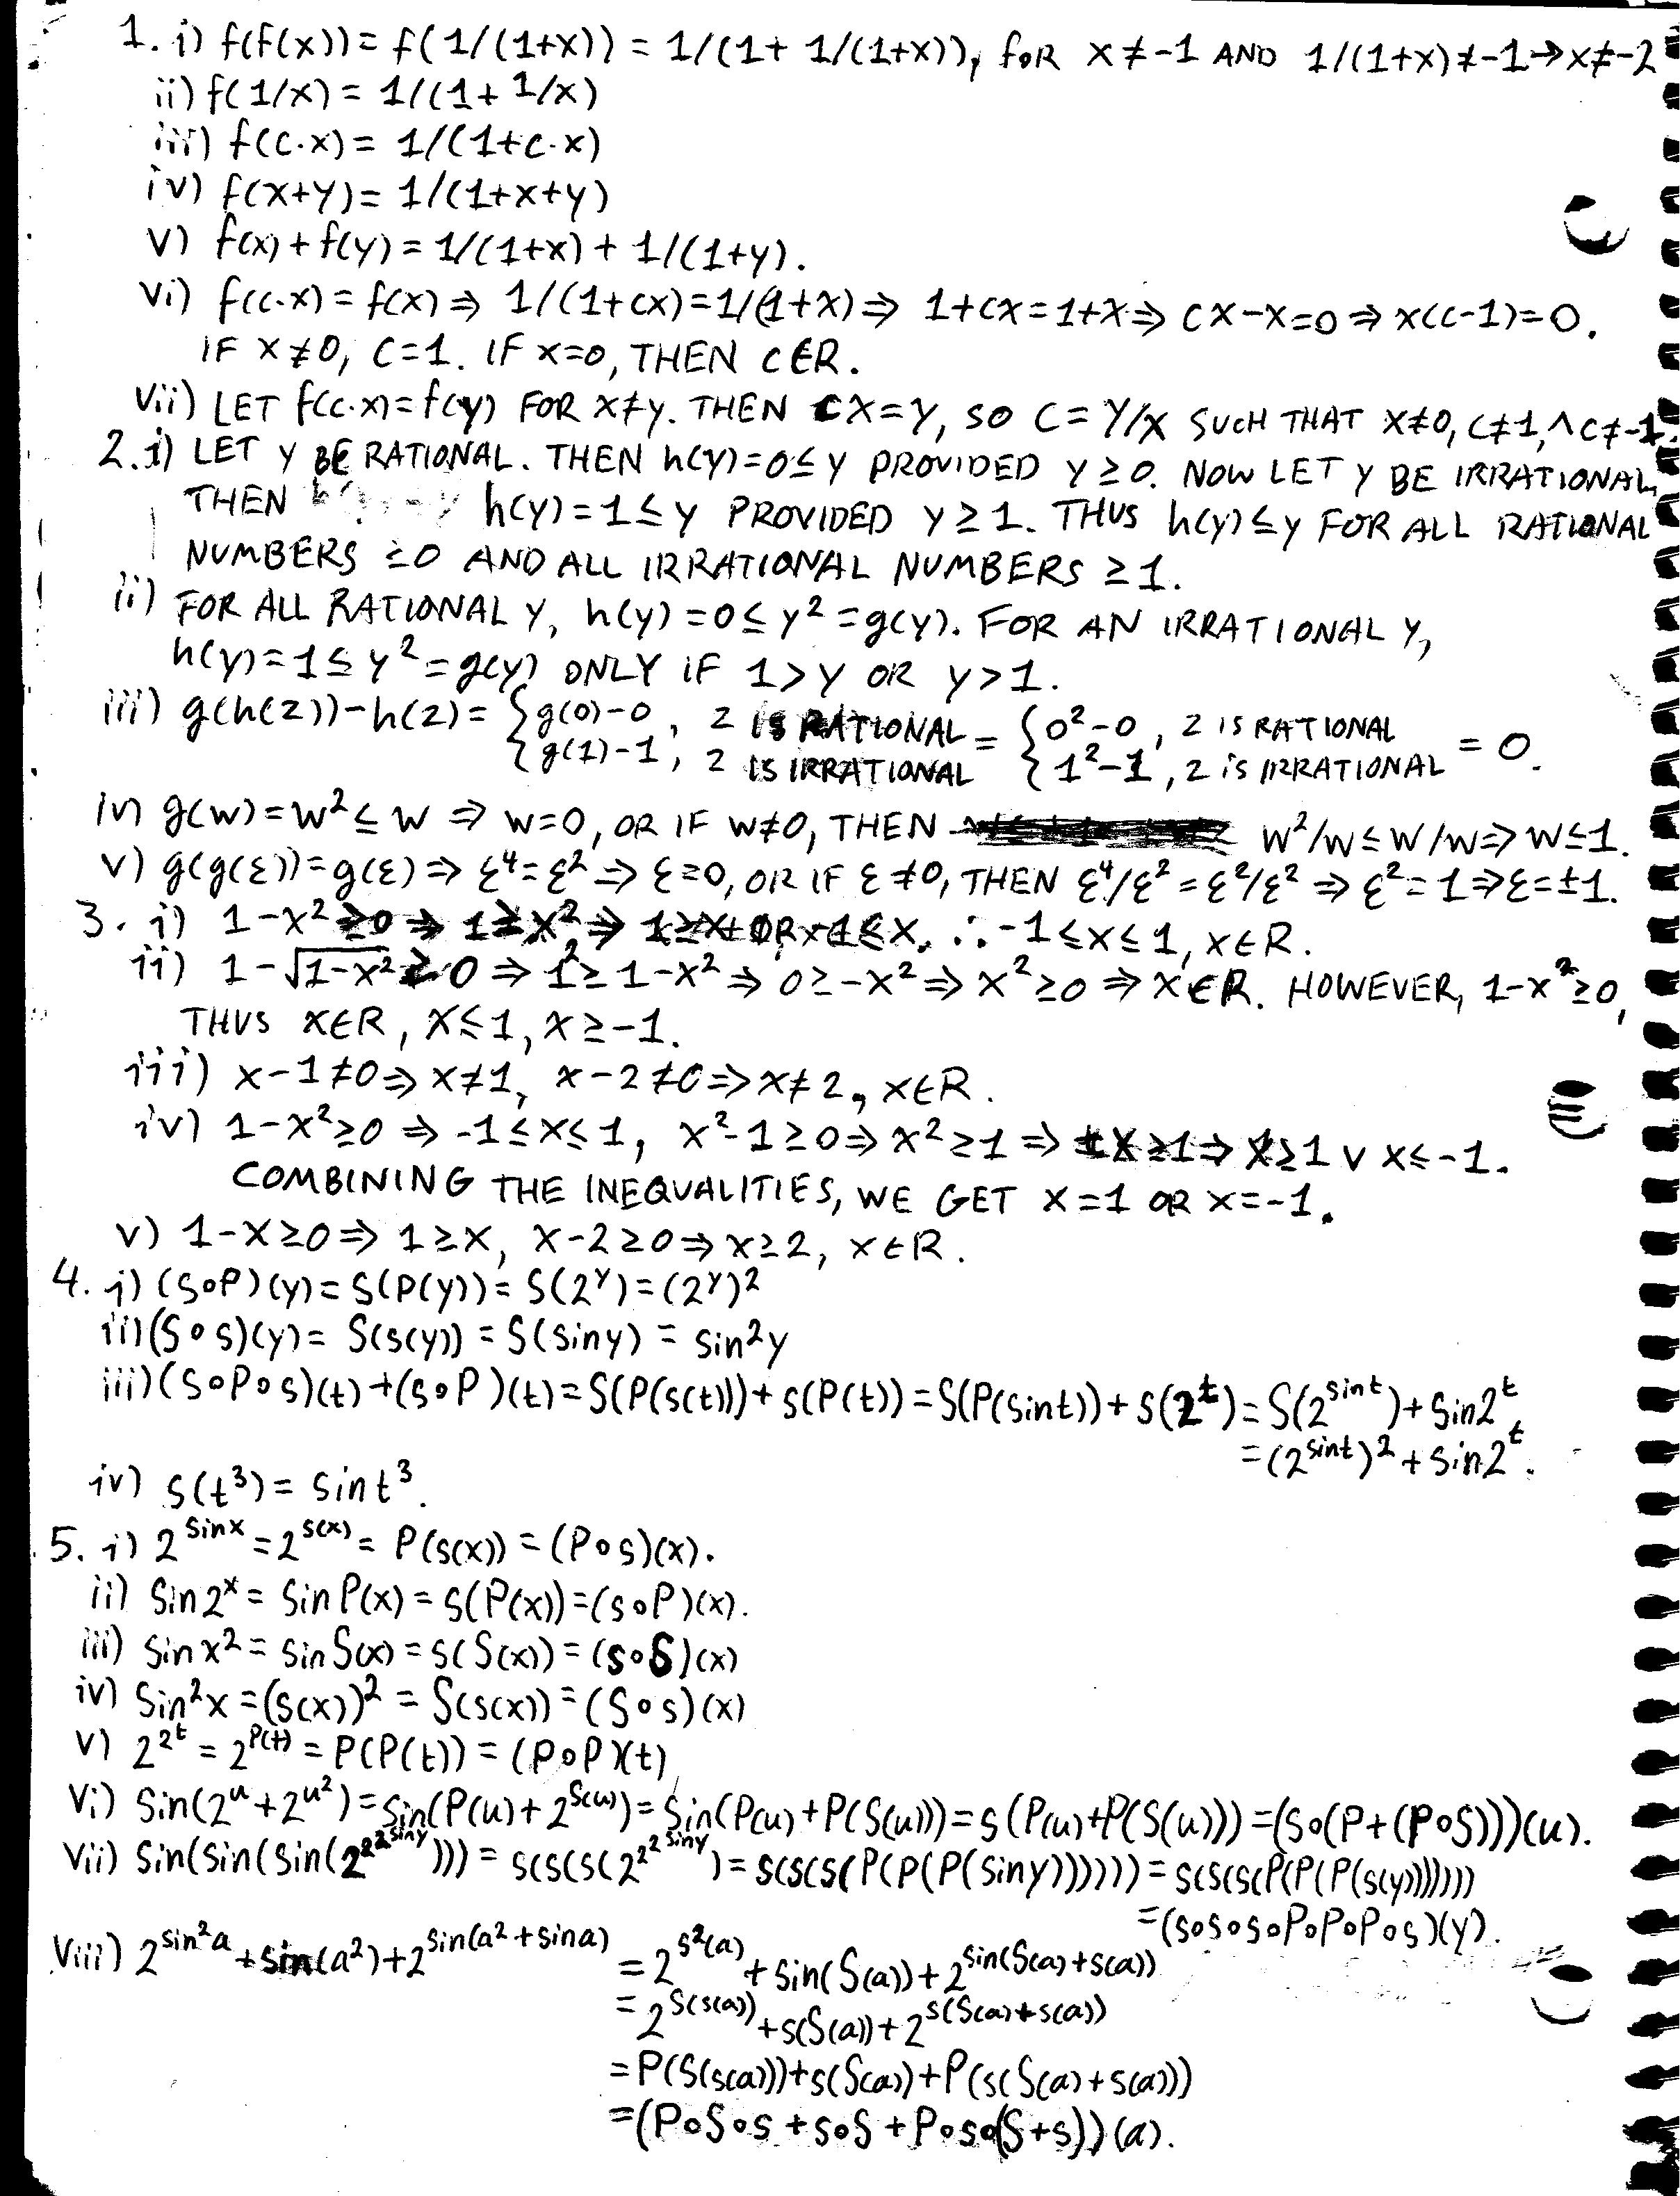 1. i) f(f(x)) = f(1/(1+x)) = 1/(1+ 1/(1+x)), FOR x≠-1 AND 1/(1+x)≠-1→x≠-2
ii) f(1/x) = 1/(1+ 1/x)
iii) f(c·x) = 1/(1+c·x)
iv) f(x+y) = 1/(1+x+y)
v) f(x)+f(y) = 1/(1+x) + 1/(1+y).
vi) f(c·x) = f(x) ⇒ 1/(1+cx)=1/(1+x) ⇒ 1+cx=1+x ⇒ cx-x=0 ⇒ x(c-1)=0.
IF x≠0, c=1. IF x=0, THEN c∈R.
vii) LET f(c·x)=f(y) FOR x≠y. THEN cx=y, SO c=y/x SUCH THAT x≠0, c≠1, ∧ c≠-1.
2. i) LET y BE RATIONAL. THEN h(y)=0≤y PROVIDED y≥0. NOW LET y BE IRRATIONAL,
THEN h(y)=1≤y PROVIDED y≥1. THUS h(y)≤y FOR ALL RATIONAL
NUMBERS ≥0 AND ALL IRRATIONAL NUMBERS ≥1.
ii) FOR ALL RATIONAL y, h(y)=0≤y²=g(y). FOR AN IRRATIONAL y,
h(y)=1≤y²=g(y) ONLY IF 1>y OR y>1.
iii) g(h(z))-h(z) = { g(0)-0, z IS RATIONAL = { 0²-0, z IS RATIONAL = 0.
{ g(1)-1, z IS IRRATIONAL { 1²-1, z IS IRRATIONAL
iv) g(w)=w²≤w ⇒ w=0, OR IF w≠0, THEN w²/w≤w/w ⇒ w≤1.
v) g(g(ε))=g(ε) ⇒ ε⁴=ε² ⇒ ε=0, OR IF ε≠0, THEN ε⁴/ε²=ε²/ε² ⇒ ε²=1 ⇒ ε=±1.
3. i) 1-x²≥0 ⇒ 1≥x² ⇒ 1≥x OR -1≤x. ∴ -1≤x≤1, x∈R.
ii) 1-√(1-x²)≥0 ⇒ 1²≥1-x² ⇒ 0≥-x² ⇒ x²≥0 ⇒ x∈R. HOWEVER, 1-x²≥0,
THUS x∈R, x≤1, x≥-1.
iii) x-1≠0 ⇒ x≠1, x-2≠0 ⇒ x≠2, x∈R.
iv) 1-x²≥0 ⇒ -1≤x≤1, x²-1≥0 ⇒ x²≥1 ⇒ ±x≥1 ⇒ x≥1 ∨ x≤-1.
COMBINING THE INEQUALITIES, WE GET x=1 OR x=-1.
v) 1-x≥0 ⇒ 1≥x, x-2≥0 ⇒ x≥2, x∈R.
4. i) (S∘P)(y) = S(P(y)) = S(2^y) = (2^y)²
ii) (S∘s)(y) = S(s(y)) = S(sin y) = sin²y
iii) (S∘P∘s)(t)+(s∘P)(t) = S(P(s(t)))+s(P(t)) = S(P(sin t))+s(2^t) = S(2^{sin t})+sin2^t
=(2^{sin t})²+sin2^t.
iv) s(t³) = sin t³.
5. i) 2^{sin x} = 2^{s(x)} = P(s(x)) = (P∘s)(x).
ii) sin2^x = sin P(x) = s(P(x)) = (s∘P)(x).
iii) sin x² = sin S(x) = s(S(x)) = (s∘S)(x)
iv) sin²x = (s(x))² = S(s(x)) = (S∘s)(x)
v) 2^{2^t} = 2^{P(t)} = P(P(t)) = (P∘P)(t)
vi) sin(2^u+2^{u²}) = sin(P(u)+2^{S(u)}) = sin(P(u)+P(S(u))) = s(P(u)+P(S(u))) = (s∘(P+(P∘S)))(u).
vii) sin(sin(sin(2^{2^{2^{sin y}}}))) = s(s(s(2^{2^{2^{sin y}}}) = s(s(s(P(P(P(sin y)))))) = s(s(s(P(P(P(s(y)))))))
=(s∘s∘s∘P∘P∘P∘s)(y).
viii) 2^{sin²a}+sin(a²)+2^{sin(a²+sin a)} = 2^{s²(a)}+sin(S(a))+2^{sin(S(a)+s(a))}
=2^{S(s(a))}+s(S(a))+2^{s(S(a)+s(a))}
=P(S(s(a)))+s(S(a))+P(s(S(a)+s(a)))
=(P∘S∘s+s∘S+P∘s∘(S+s))(a).